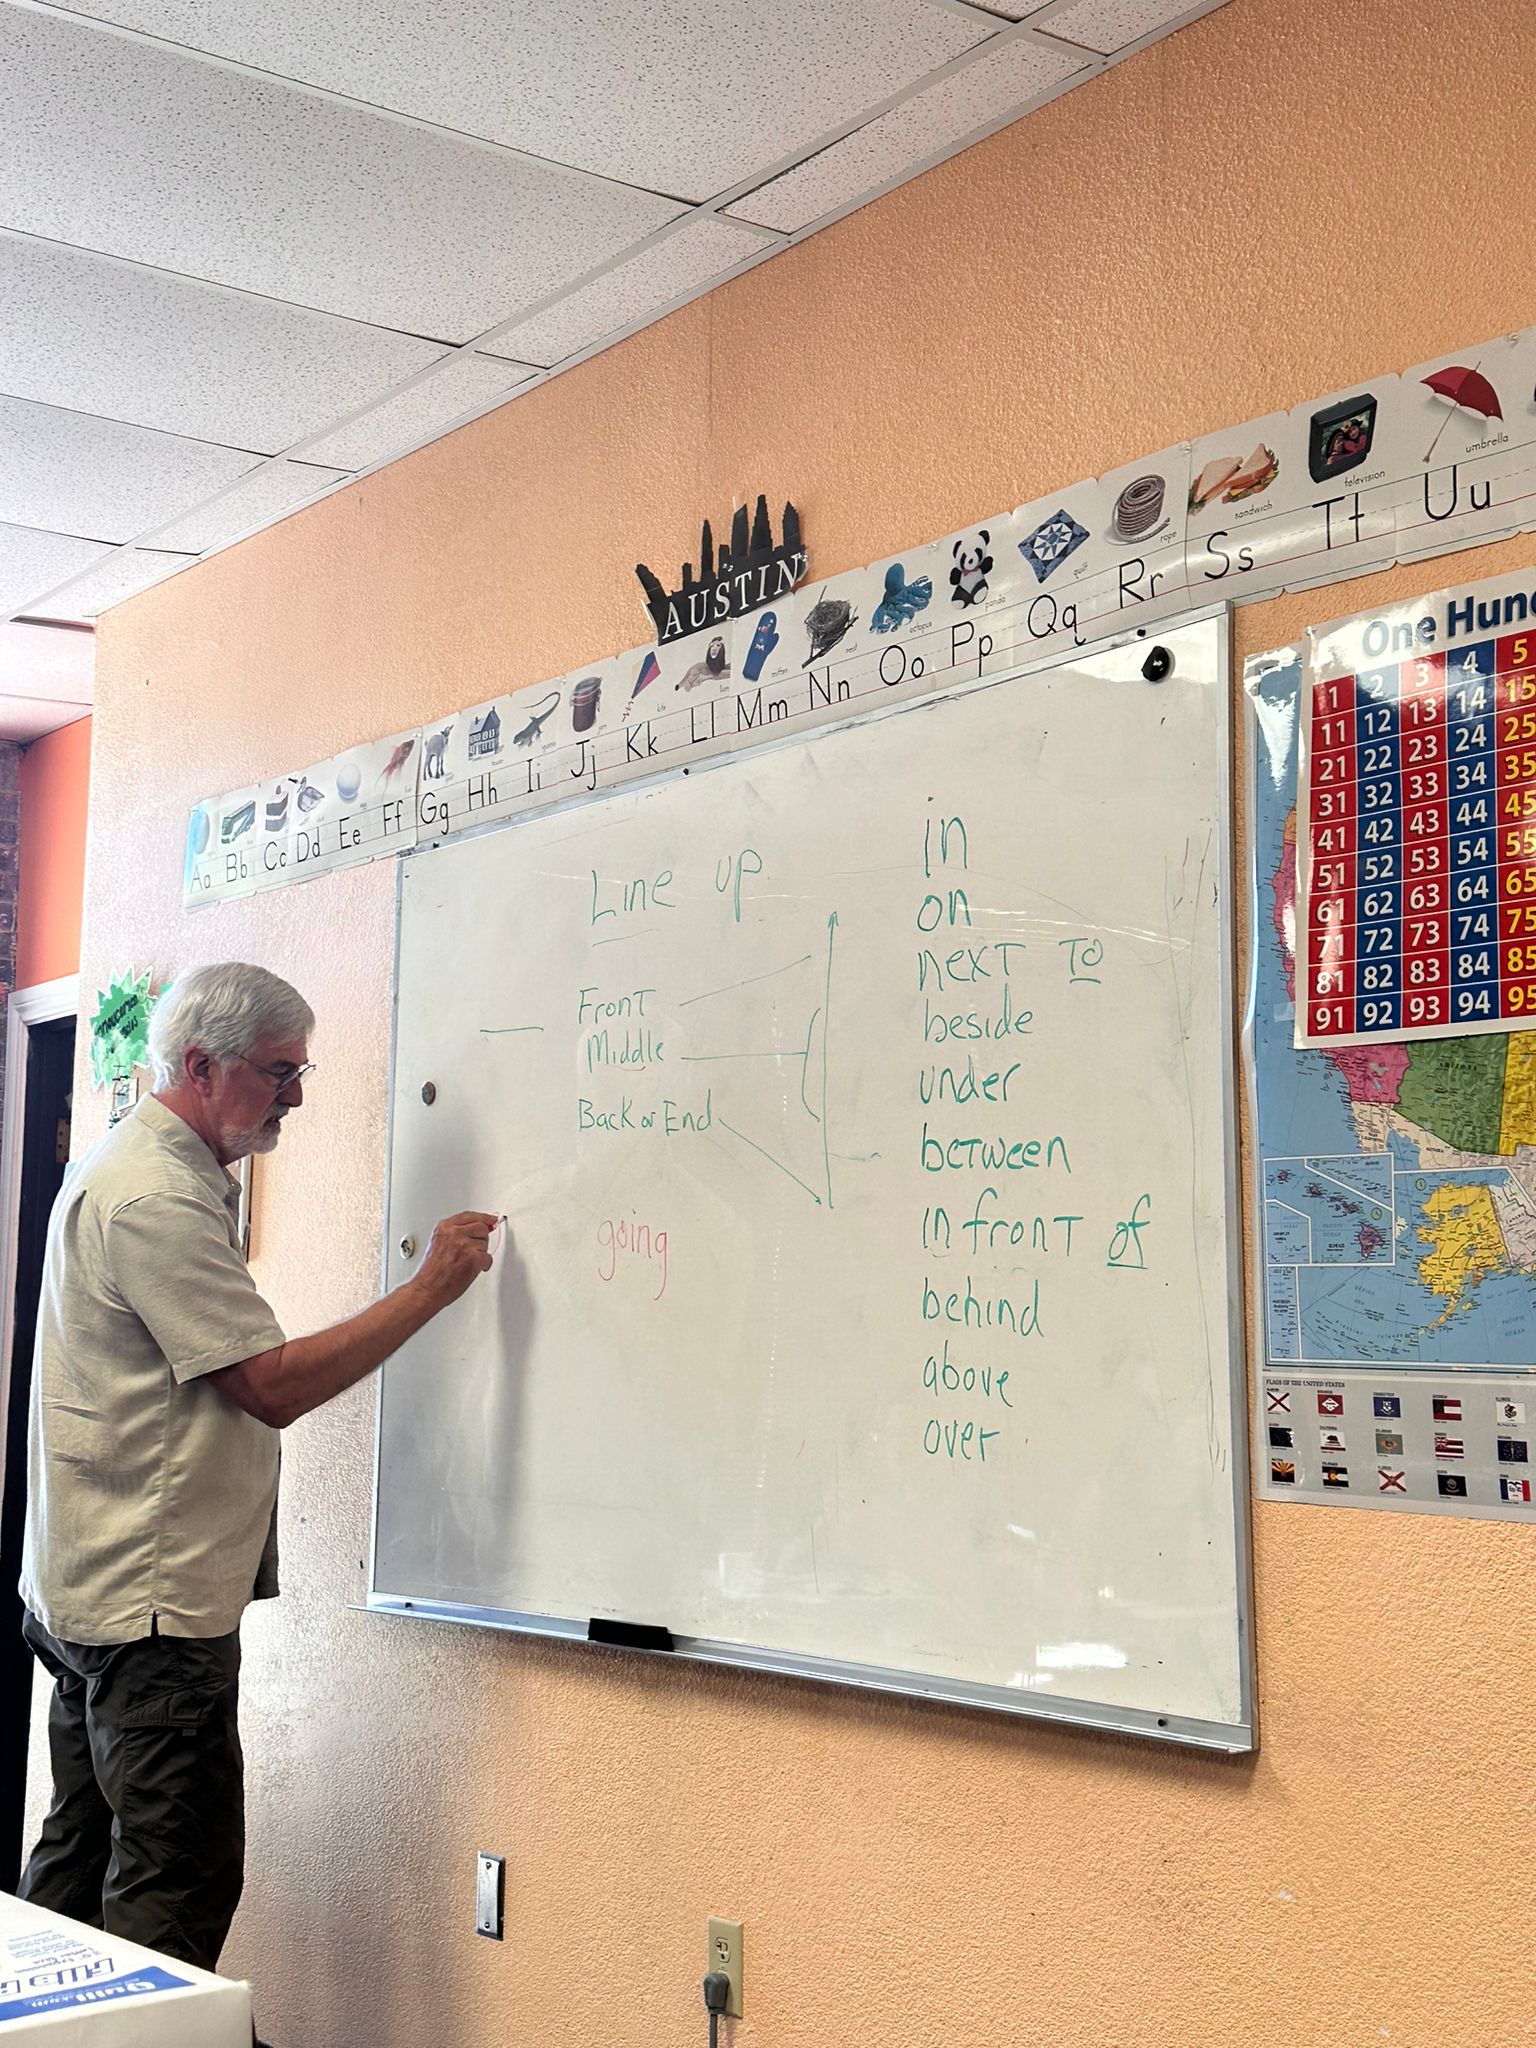 AUSTIN
Aa Bb Cc Dd Ee Ff Gg Hh Ii Jj Kk Ll Mm Nn Oo Pp Qq Rr Ss Tt Uu
octopus
panda
quilt
rope
sandwich
television
umbrella
Line up
Front
Middle
Back or End
going
in
on
next to
beside
under
between
in front of
behind
above
over
One Hun
1 2 3 4 5
11 12 13 14 15
21 22 23 24 25
31 32 33 34 35
41 42 43 44 45
51 52 53 54 55
61 62 63 64 65
71 72 73 74 75
81 82 83 84 85
91 92 93 94 95
ARIZONA
FLAGS OF THE UNITED STATES
Quill